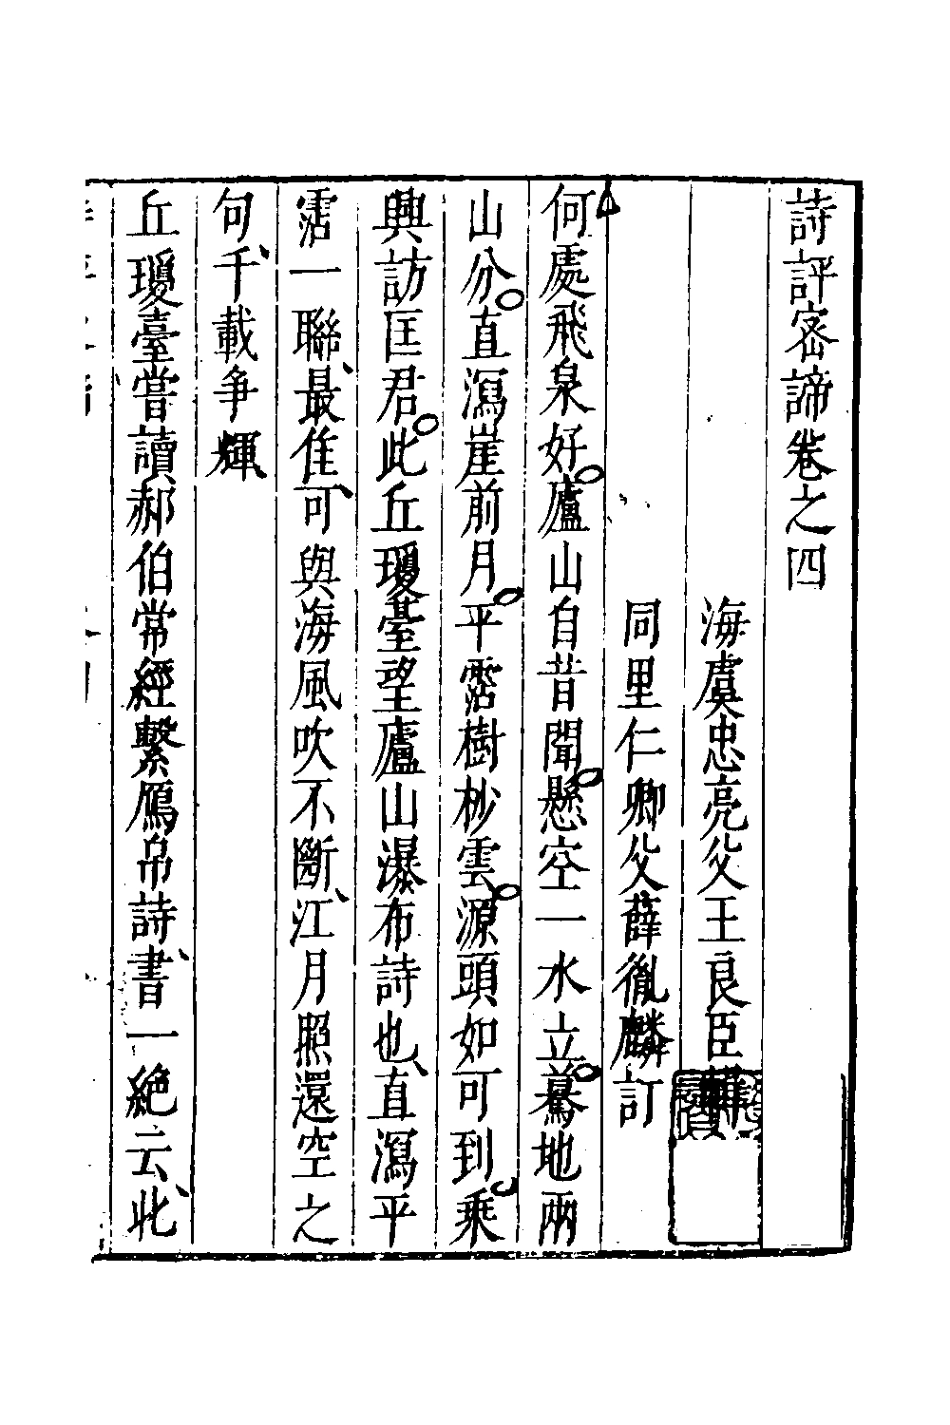 詩評密諦卷之四
海虞忠亮父王良臣輯
同里仁卿父薛胤麟訂
何處飛泉好廬山自昔聞懸空一水立驀地兩
山分直瀉崖前月平霑樹杪雲源頭如可到乘
興訪匡君此丘瓊臺望廬山瀑布詩也直瀉平
霑一聯最佳可與海風吹不斷江月照還空之
句千載争輝
丘瓊臺嘗讀郝伯常經繫鴈帛詩書一絶云此